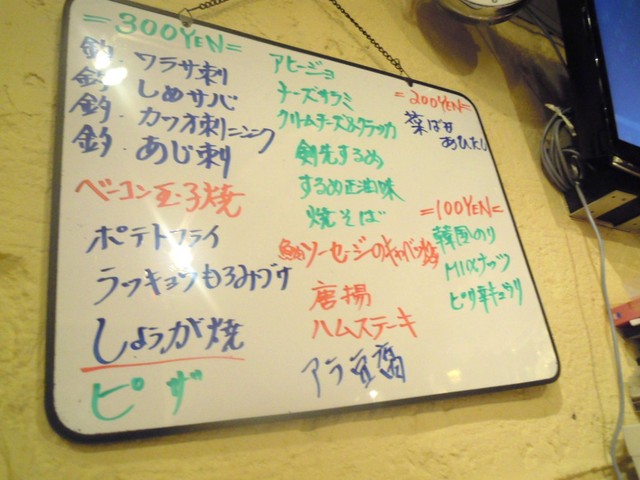 =300YEN=
釣 ワラサ刺
釣 しめサバ
釣 カツオ刺ニンニク
釣 あじ刺
ベーコン玉子焼
ポテトフライ
ラッキョウもろみヅケ
しょうが焼
ピザ
アヒージョ
チーズサラミ
クリームチーズ&クラッカ
剣先するめ
するめ正油味
焼そば
魚肉ソーセージのキャベツ炒
唐揚
ハムステーキ
アラ豆腐
=200YEN=
葉ばな
おひたし
=100YEN=
韓国のり
MIXナッツ
ピリ辛キュウリ